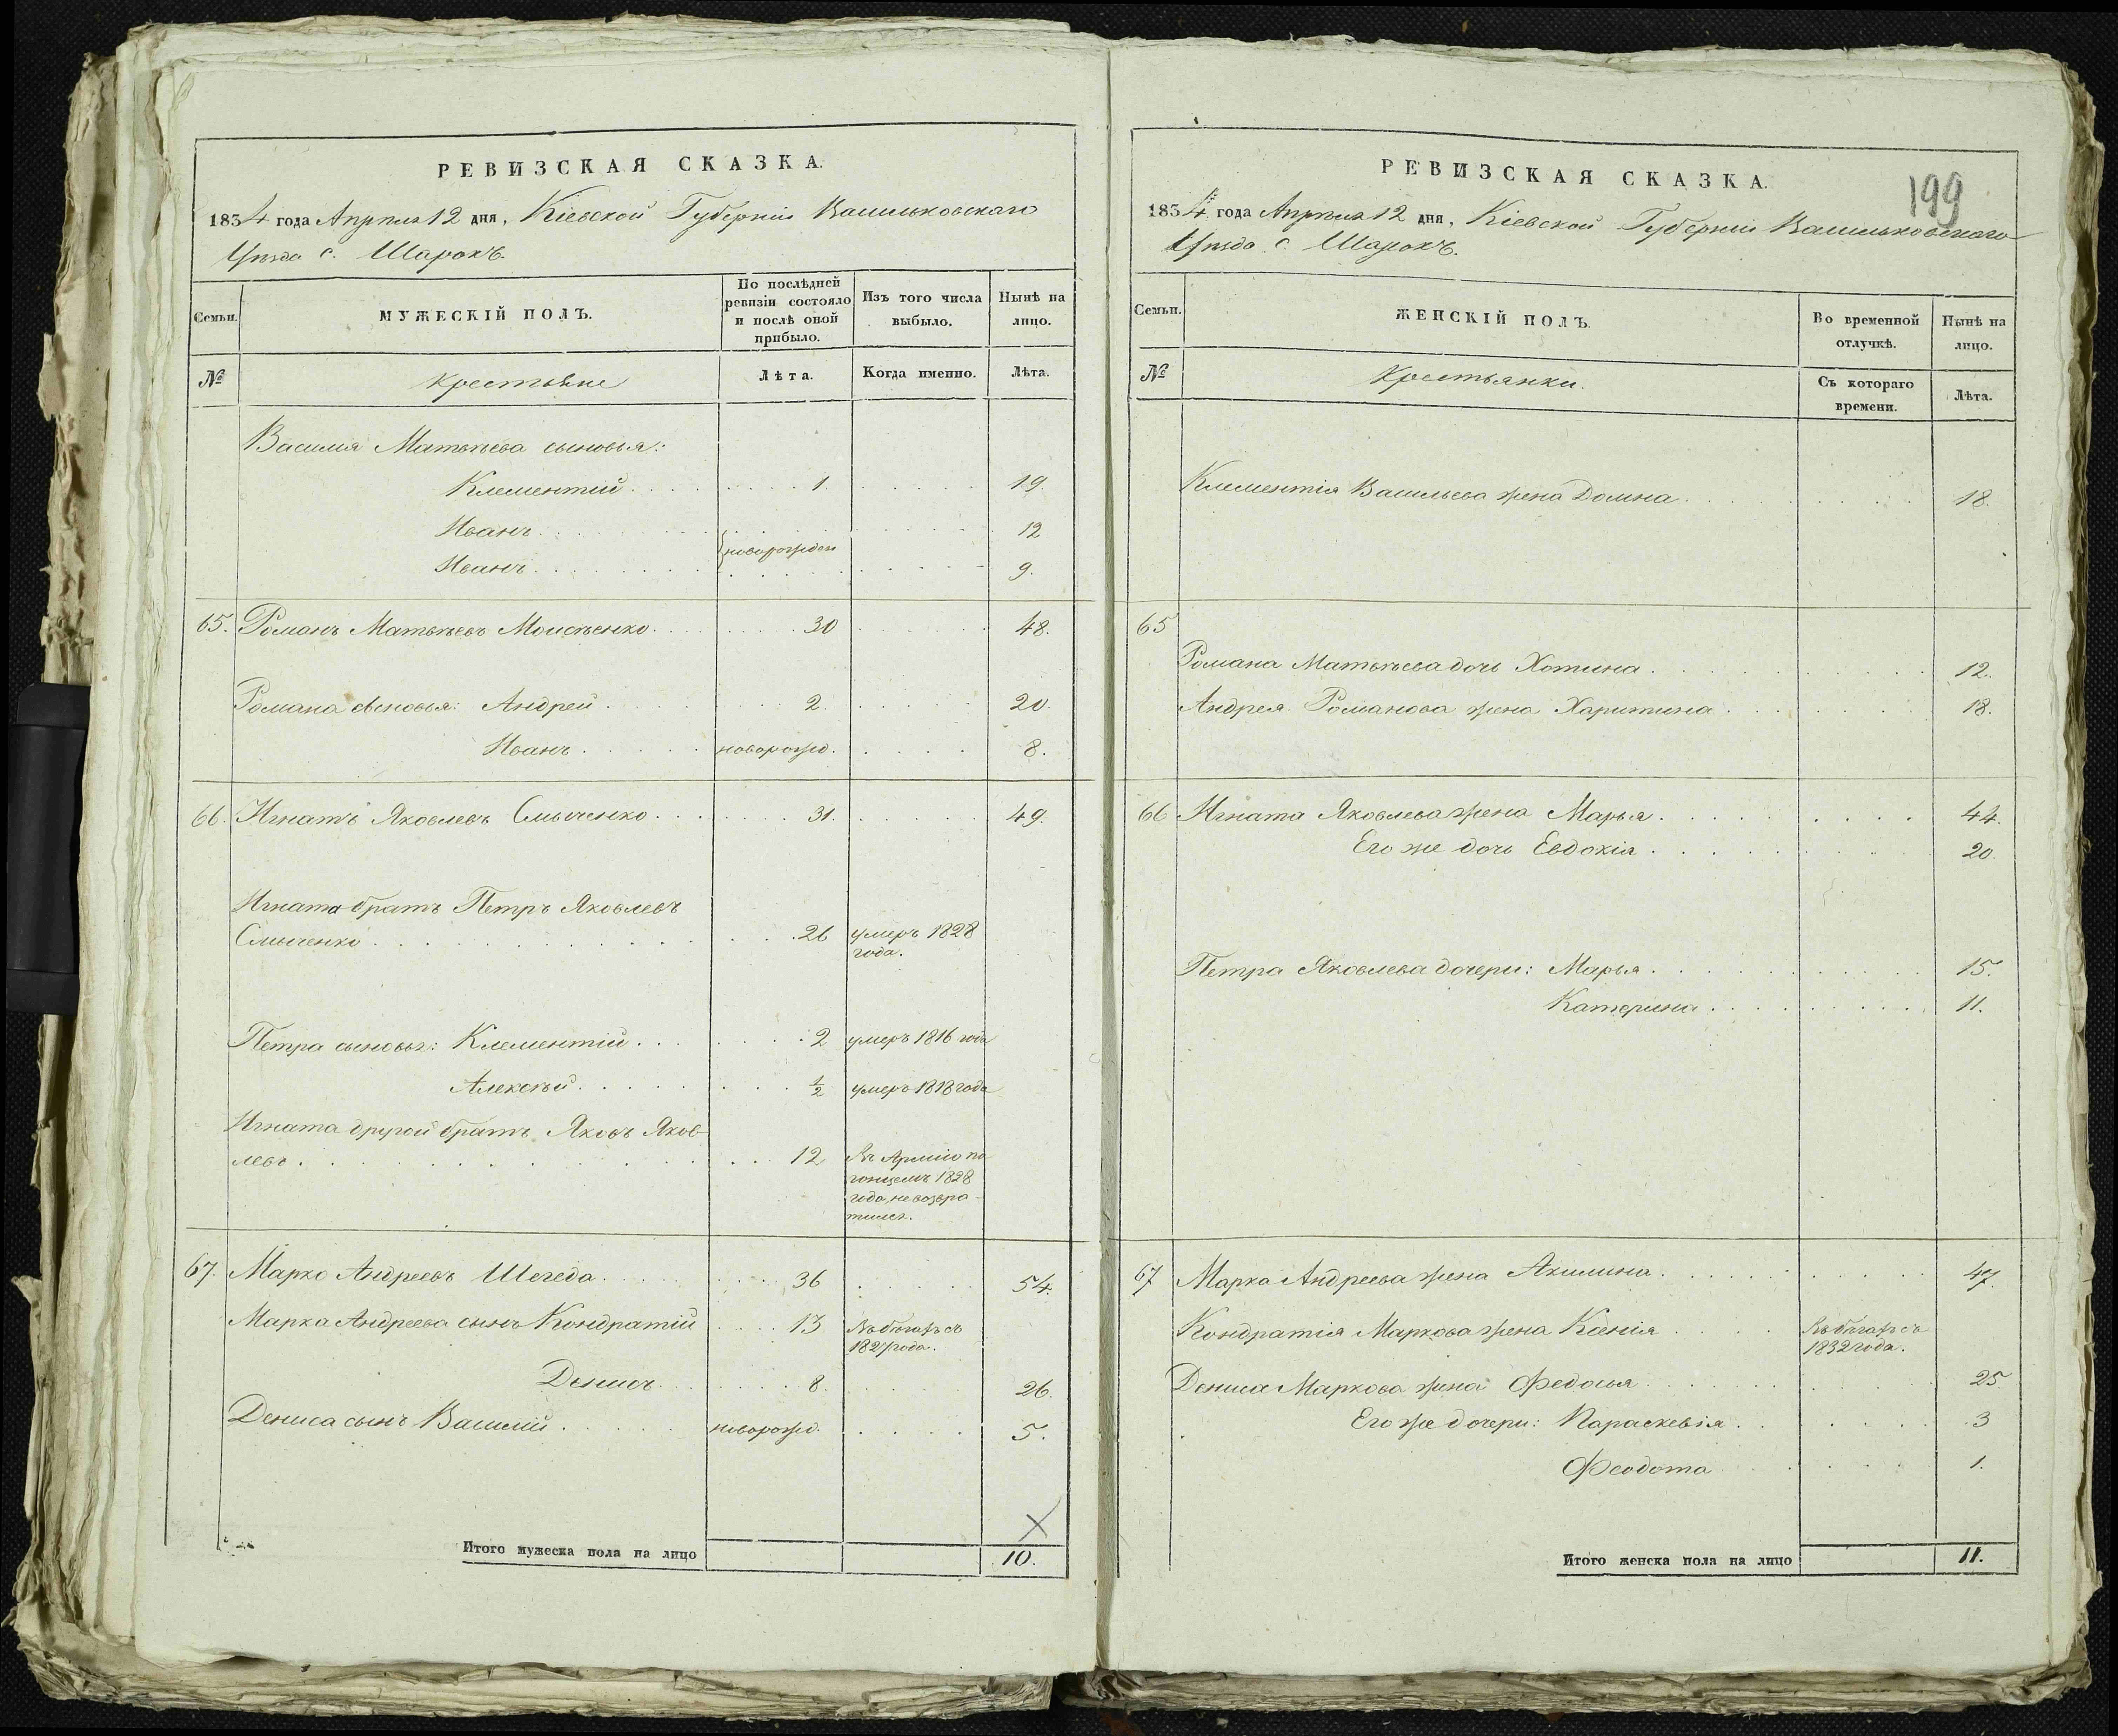 РЕВИЗСКАЯ СКАЗКА.
1834 года Апрѣля 12 дня, Кіевской Губерніи Васильковскаго
Уѣзда с. Шарокъ.
Семьи.
МУЖЕСКІЙ ПОЛЪ.
По послѣдней
ревизіи состояло
и послѣ оной
прибыло.
Изъ того числа
выбыло.
Нынѣ на
лицо.
№ Крестьяне Лѣта. Когда именно. Лѣта.
Василія Матвѣева сыновья:
Клементій 1. 19.
Иванъ 12
новорожден
Иванъ 9.
65. Романъ Матвѣевъ Моисѣенко 30 48.
Романа сыновья: Андрей 2. 20.
Иванъ новорожд. 8.
66. Игнатъ Яковлевъ Смыченко 31. 49.
Игната братъ Петръ Яковлевъ
Смыченко 26 умеръ 1828
года.
Петра сыновья: Клементій 2 умеръ 1816 года
Алексѣй 1/2 умеръ 1818 года
Игната другой братъ Яковъ Яков-
левъ 12 Въ Армію по
гонцемъ 1828
года, не возвра-
тился.
67. Марко Андреевъ Шегеда 36 54.
Марка Андреева сынъ Кондратій 13 Въ бѣгахъ съ
1827 года.
Денисъ 8. 26.
Дениса сынъ Василій новорожд. 5.
Итого мужеска пола на лицо 10.
199
РЕВИЗСКАЯ СКАЗКА.
1834 года Апрѣля 12 дня, Кіевской Губерніи Васильковскаго
Уѣзда с. Шарокъ.
Семьи.
ЖЕНСКІЙ ПОЛЪ.
Во временной
отлучкѣ.
Нынѣ на
лицо.
№ Крестьянки.
Съ котораго
времени.
Лѣта.
Клементія Васильева жена Домна 18.
65
Романа Матвѣева дочь Хотина 12.
Андрея Романова жена Харитина 18.
66 Игната Яковлева жена Марья 44.
Его же дочь Евдокія 20.
Петра Яковлева дочери: Марья 15.
Катерина 11.
67 Марка Андреева жена Акилина 47.
Кондратія Маркова жена Ксенія Въ бѣгахъ съ
1832 года.
Дениса Маркова жена Федосья 25
Его же дочери: Параскевія 3
Феодота 1.
Итого женска пола на лицо 11.